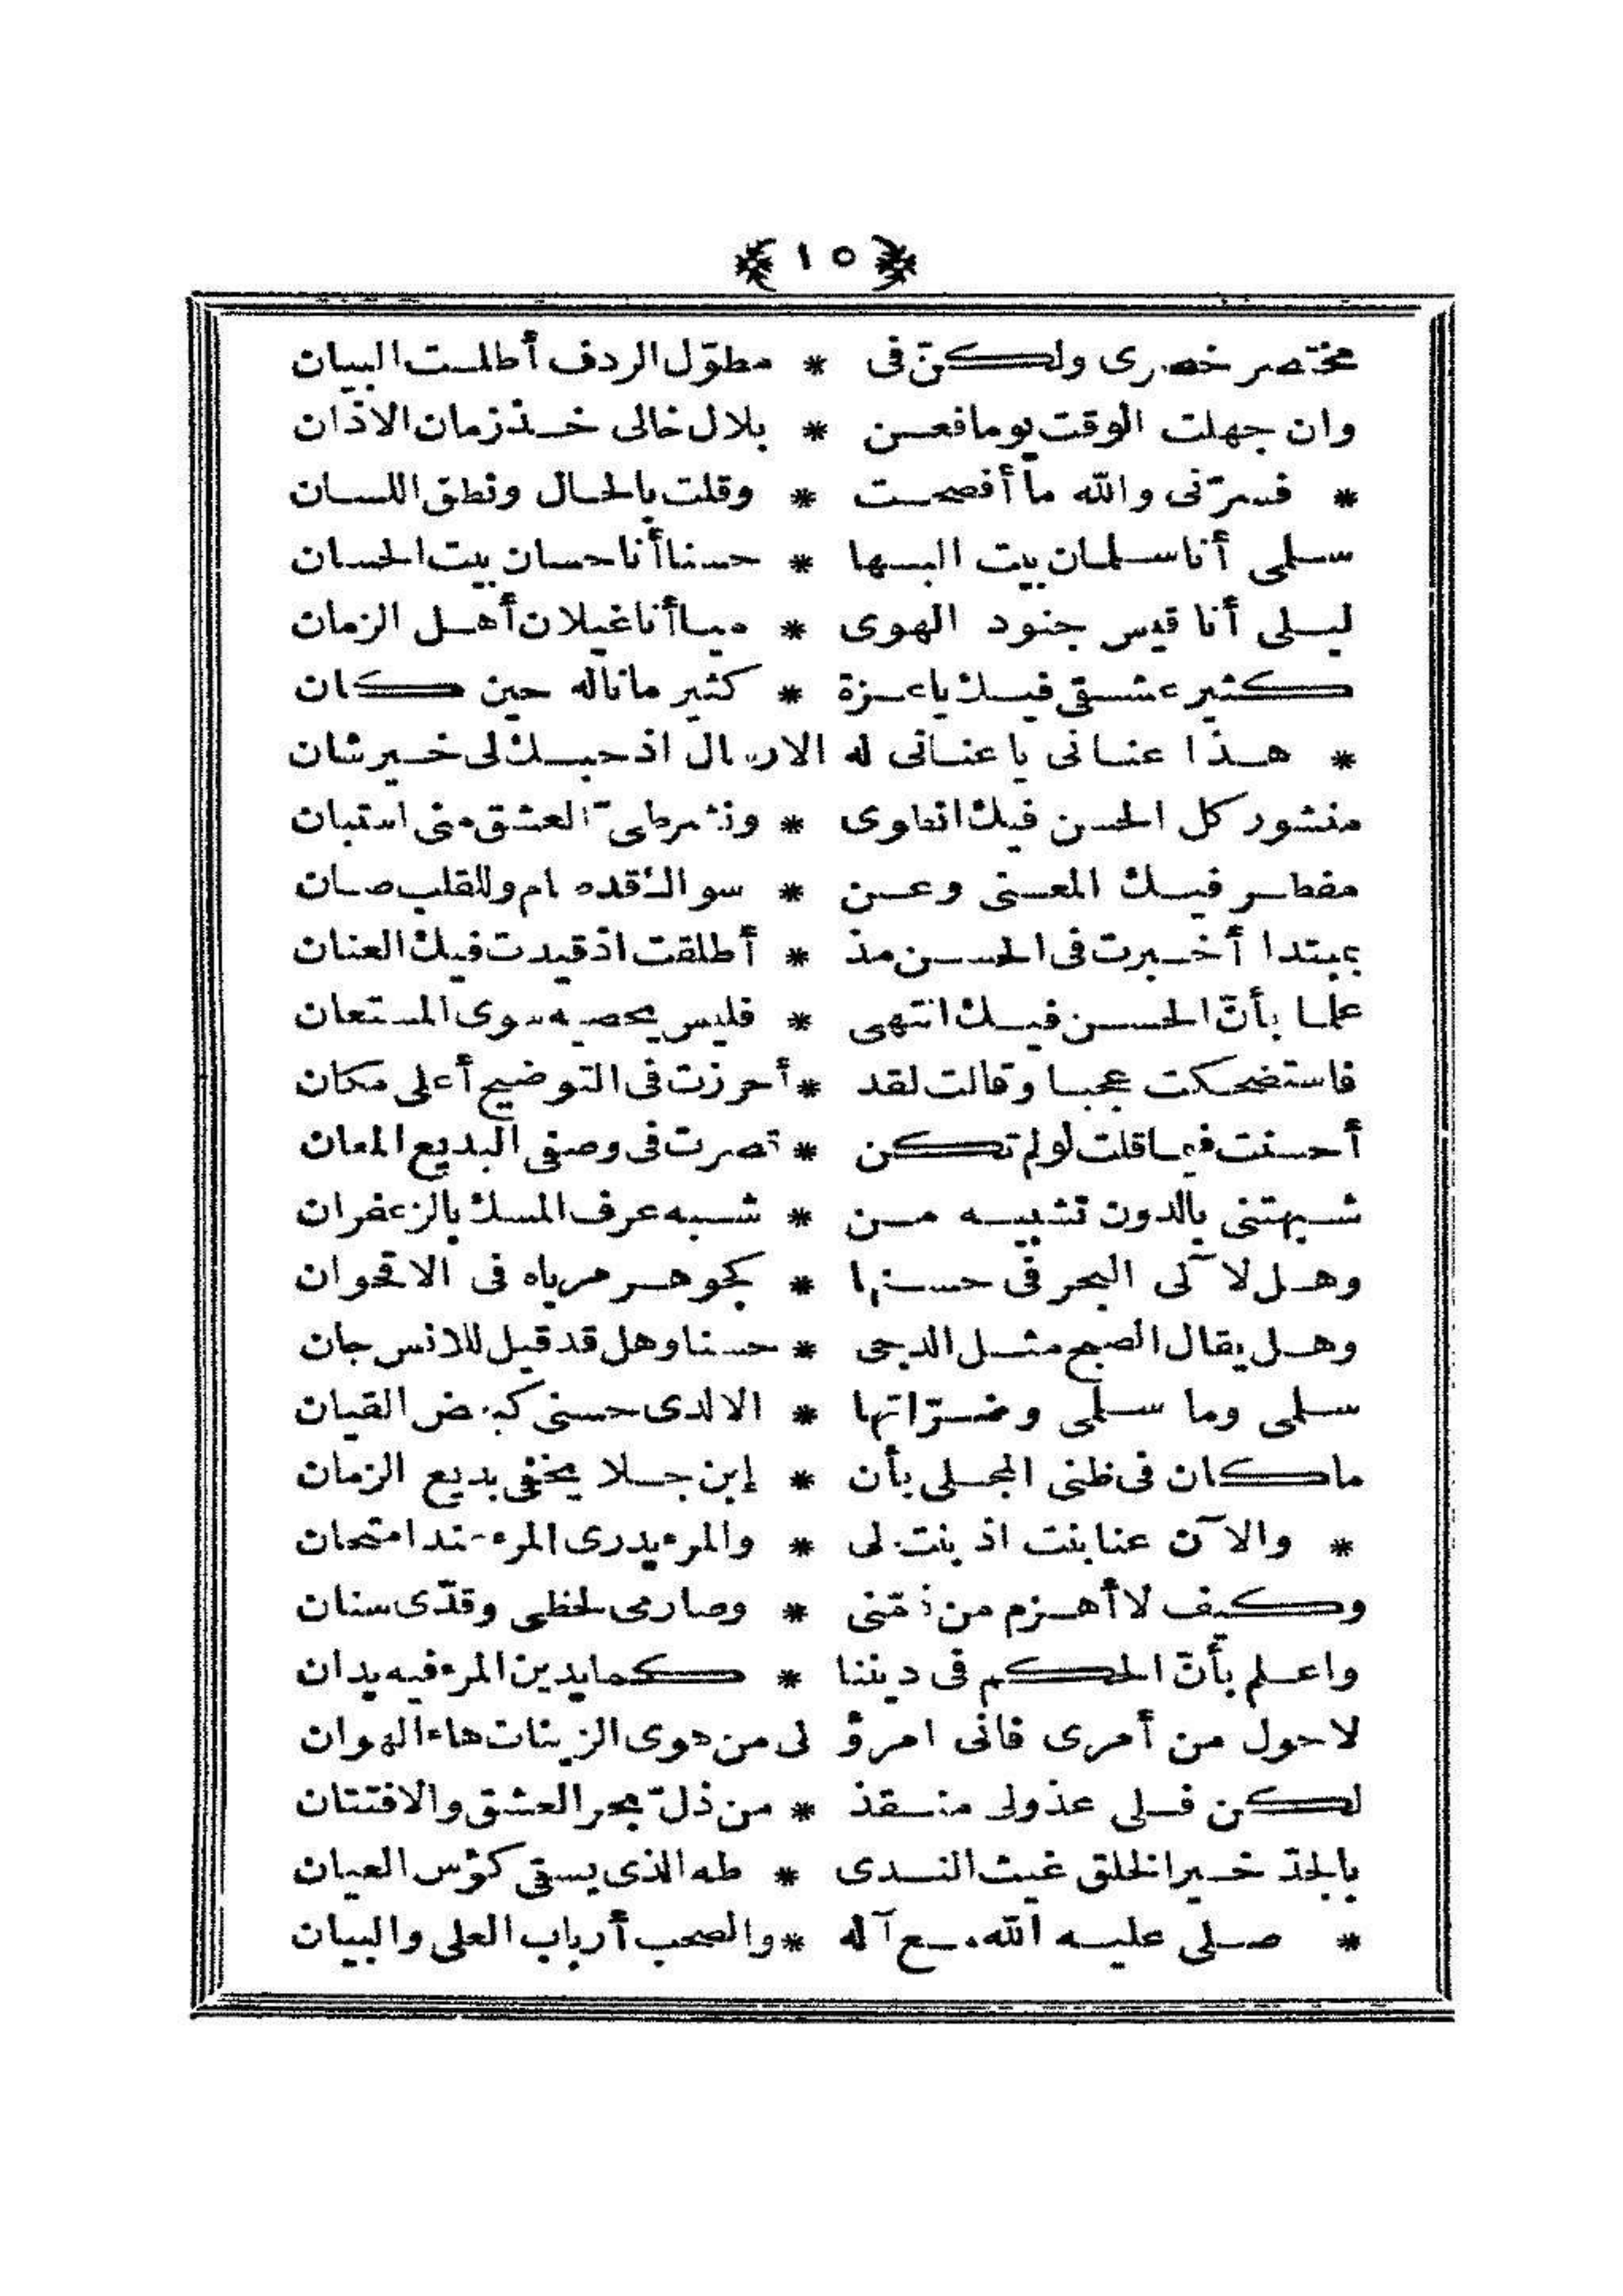 ﴿١٥﴾
مختصر خصرى ولكنّ فى * مطوّل الردف أطلت البيان
وان جهلت الوقت يوما فعن * بلال خالى خذ زمان الاذان
* فسرّنى والله ما أفصحت * وقلت بالحال ونطق اللسان
سلمى أنا سلمان بيت البها * حسنا أنا حسان بيت الحسان
ليلى أنا قيس جنود الهوى * ميا أنا غيلان أهل الزمان
كثير عشقى فيك يا عزة * كثير ما ناله حين كان
* هذا عنانى يا عنانى له الار ال اذ حبك لى خير شان
منشور كل الحسن فيك انطوى * ونشر طىّ العشق منى استبان
مفطر فيك المعنى وعن * سواك قد صام وللقلب صان
بمبتدا أخبرت فى الحسن مذ * أطلقت اذ قيدت فيك العنان
علما بأنّ الحسن فيك انتهى * فليس يحصيه سوى المستعان
فاستضحكت عجبا وقالت لقد * أحرزت فى التوضيح أعلى مكان
أحسنت فيما قلت لو لم تكن * قصرت فى وصفى البديع المعان
شبهتنى بالدون تشبيه من * شبه عرف المسك بالزعفران
وهل لآلى البحر فى حسنها * كجوهر مرباه فى الاقحوان
وهل يقال الصبح مثل الدجى * حسنا وهل قد قيل للانس جان
سلمى وما سلمى وضرّاتها * الا لدى حسنى كبعض القيان
ما كان فى ظنى المجلى بأن * إبن جلا يخفى بديع الزمان
* والآن عنا بنت اذ بنت لى * والمرء يدرى المرء عند امتحان
وكيف لا أهزم من ذمّنى * وصارمى لحظى وقدّى سنان
واعلم بأنّ الحكم فى ديننا * كما يدين المرء فيه يدان
لا حول من أمرى فانى امرؤ لى من هوى الزينات هاء الهوان
لكن فلى عذولى منقذ * من ذلّ بحر العشق والافتتان
بالجدّ خير الخلق غيث الندى * طه الذى يسقى كؤس العيان
* صلى عليه الله مع آله * والصحب أرباب العلى والبيان